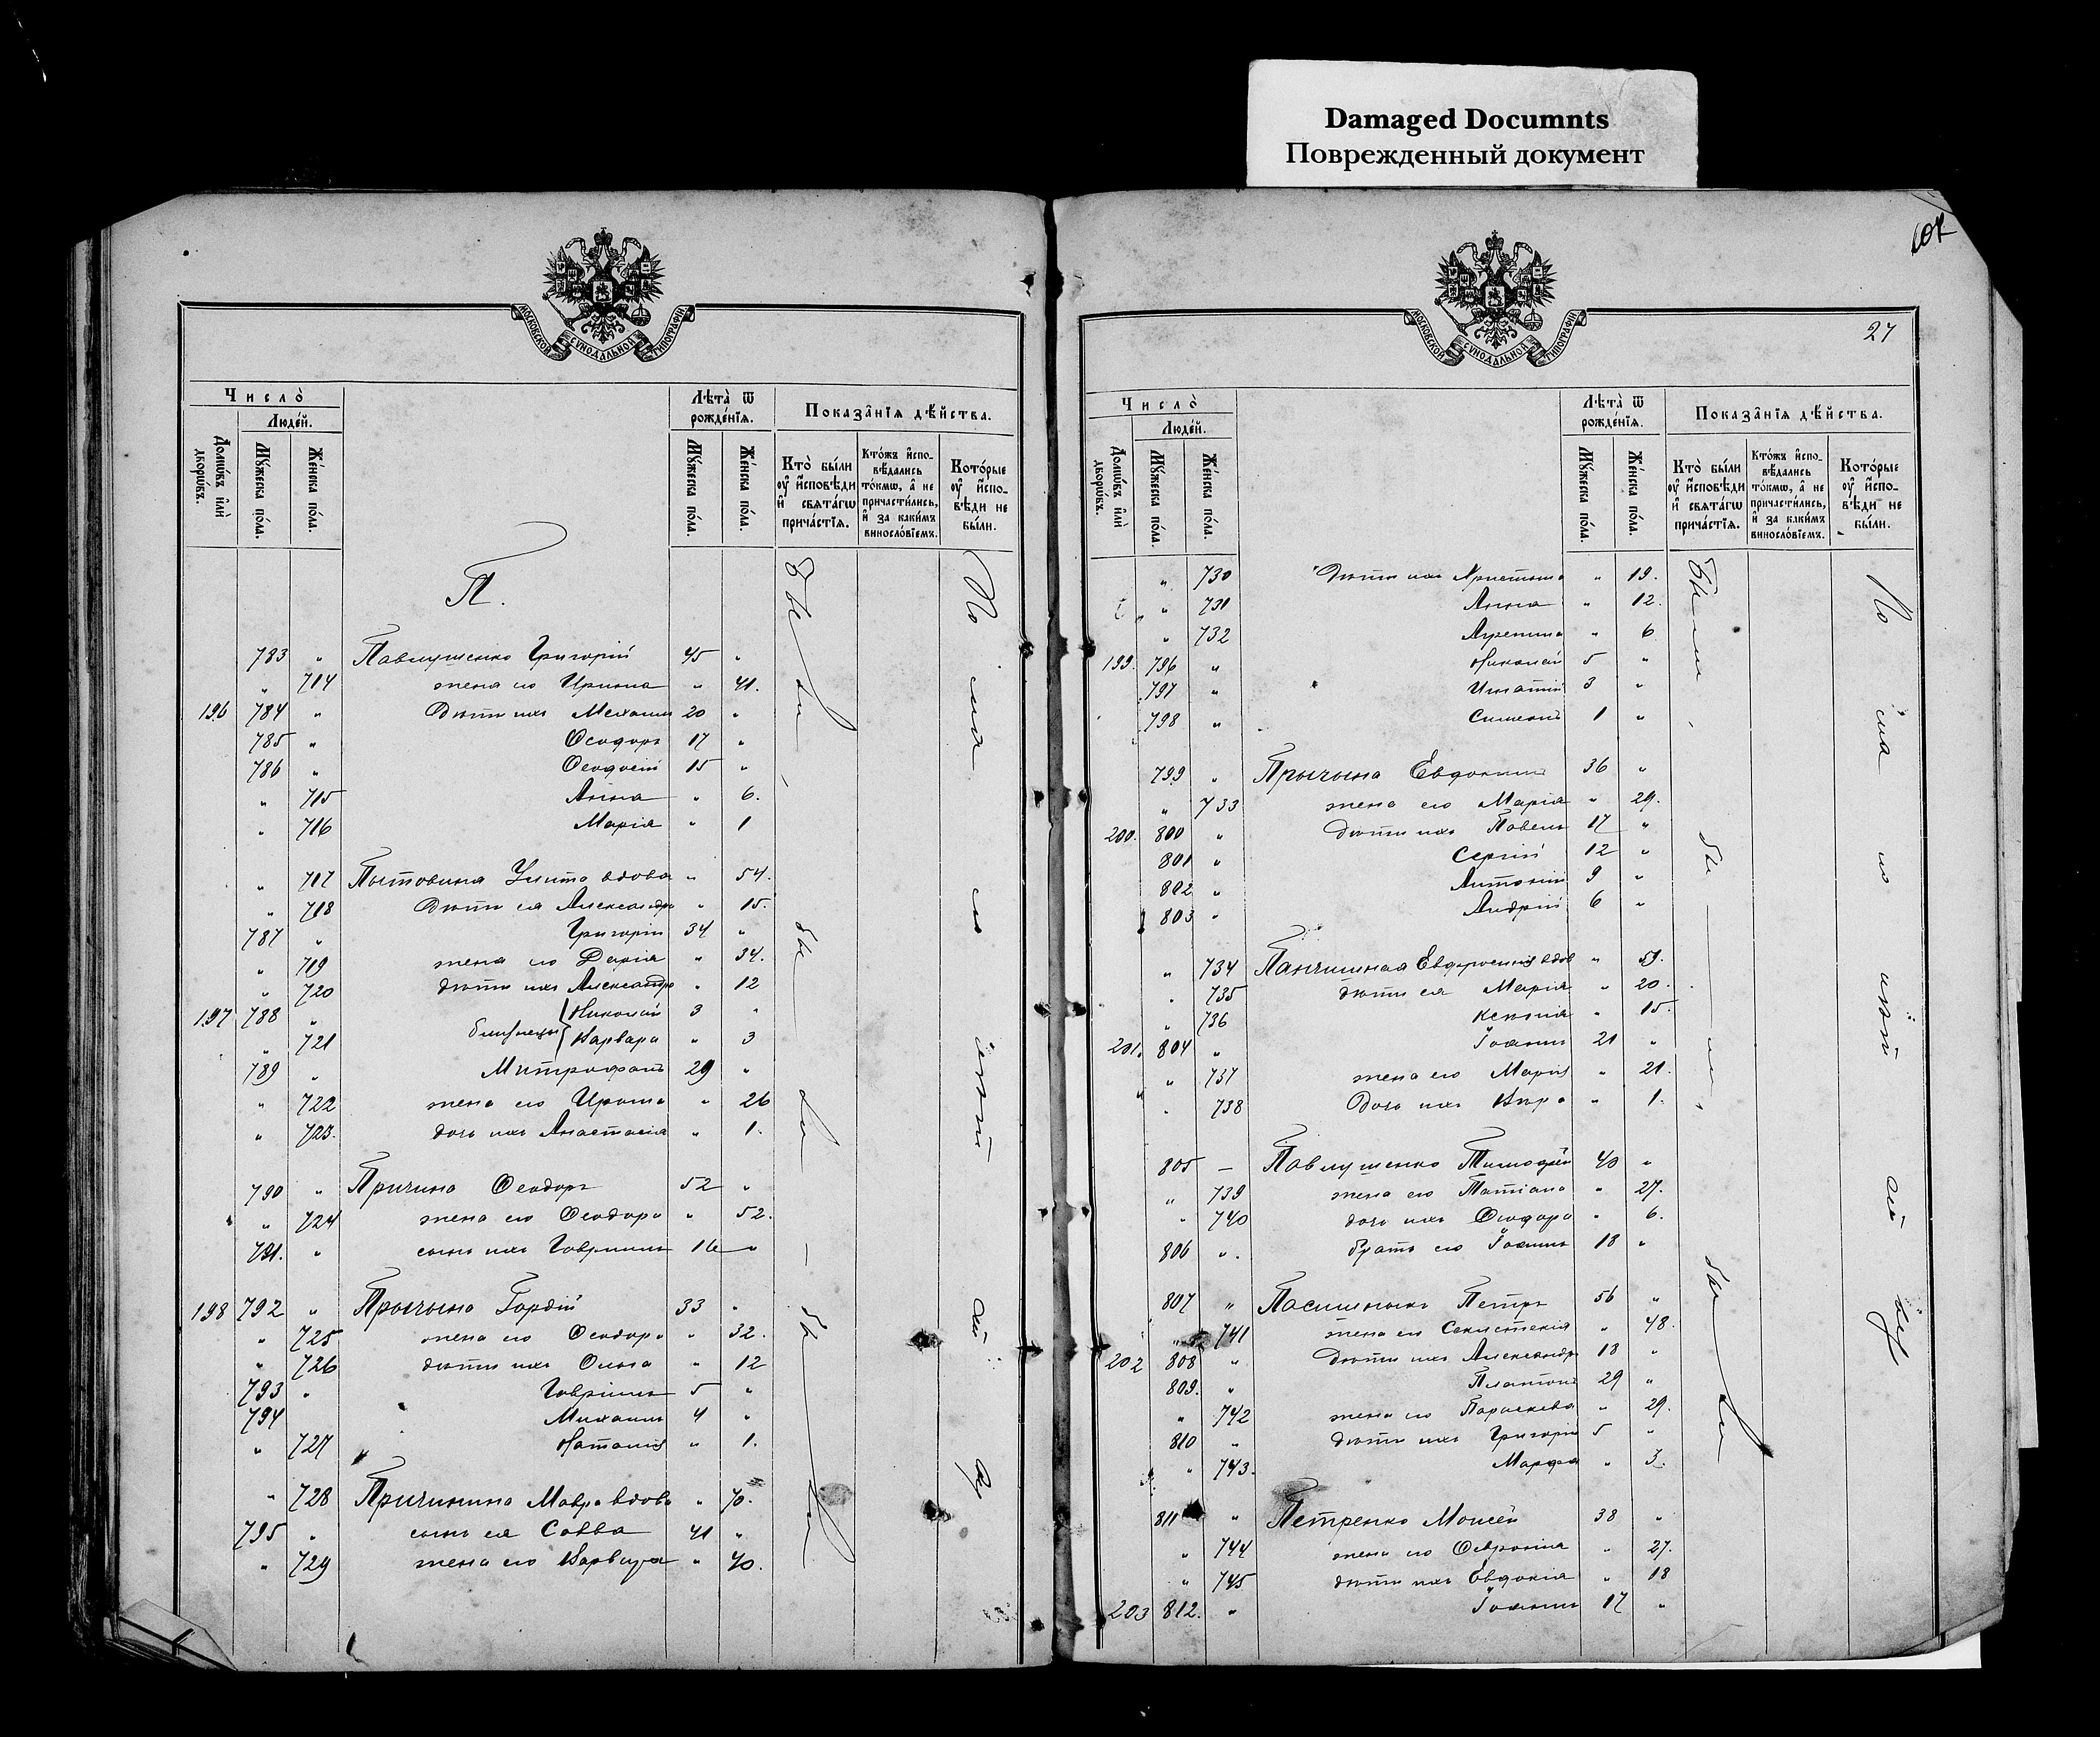 Damaged Documnts
Поврежденный документ
МОСКОВСКОЙ СѴНОДАЛЬНОЙ ТИПОГРАФІИ
Число̀
Людéй.
Домѡ́въ и҆лѝ дворѡ́въ.
Мꙋ́жеска по́ла.
Же́нска по́ла.
Лѣ́та ѿ рожде́нїѧ.
Мꙋ́жеска по́ла.
Же́нска по́ла.
Показа̑нїѧ дѣ́йства.
Кто̀ бы́ли ᲂу҆ и҆сповѣди и҆ свѧта́гѡ прича́стїѧ.
Кто́жъ и҆спо-вѣ́дались то́кмѡ, а҆ не причасти́лись, и҆ за каки́мъ винословїемъ.
Кото́рые ᲂу҆ и҆спо-вѣди не бы́ли.
П.
783 " Павлушенко Григорій 45 "
" 714 жена его Ирина " 41.
196 784 " Дѣти ихъ Михаилъ 20 "
785 " Ѳеодоръ 17 "
786 " Ѳеодосій 15 "
" 715 Анна " 6.
" 716 Марія " 1
" 717 вдова " 54.
" 718 Дѣти ея Александра " 15.
787 " Григорій 34 "
" 719 жена его Дарія " 34.
" 720 дѣти ихъ Александра " 12
197 788 " Николай 3 "
" 721 близнецы Варвара " 3
789 " Митрофанъ 29 "
" 722 жена его Ирина " 26
" 723. дочь ихъ Анастасія " 1.
790 " Причина Ѳеодоръ 52 "
" 724 жена его Ѳеодора " 52.
791. " сынъ ихъ Гавріилъ 16 "
198 792 " Прычына Гордій 33 "
" 725 жена его Ѳеодора " 32.
" 726 дѣти ихъ Ольга " 12
793 " Гавріилъ 5 "
794 Михаилъ 4 "
" 727 Наталія " 1.
" 728 Причинина Мавра вдова " 70.
795 " сынъ ея Савва 41 "
" 729 жена его Варвара " 40.
Были
были
были
27
МОСКОВСКОЙ СѴНОДАЛЬНОЙ ТИПОГРАФІИ
Число̀
Людéй.
Домѡ́въ и҆лѝ дворѡ́въ.
Мꙋ́жеска по́ла.
Же́нска по́ла.
Лѣ́та ѿ рожде́нїѧ.
Мꙋ́жеска по́ла.
Же́нска по́ла.
Показа̑нїѧ дѣ́йства.
Кто̀ бы́ли ᲂу҆ и҆сповѣди и҆ свѧта́гѡ прича́стїѧ.
Кто́жъ и҆спо-вѣ́дались то́кмѡ, а҆ не причасти́лись, и҆ за каки́мъ винословїемъ.
Кото́рые ᲂу҆ и҆спо-вѣди не бы́ли.
" 730 Дѣти ихъ Христина " 19.
" 731 Анна " 12.
" 732 Агрепина " 6
199. 796 " Николай 5 "
797 " Игнатій 3 "
798 " Симеонъ 1 "
799 " Прычына Евдокимъ 36 "
" 733 жена его Марія " 29.
200. 800 " дѣти ихъ Павелъ 17 "
801 " Сергій 12 "
802 " Антоній 9 "
803 " Андрій 6 "
" 734 Евфросинія вдов " 59.
" 735 дѣти ея Марія " 20.
" 736 Ксенія " 15.
201. 804 " Іоаннъ 21 "
" 737 жена его Марія " 21.
" 738 Дочь ихъ " 1.
805 — Павлушенко Тимоѳей 40 "
" 739 жена его Татіана " 27.
" 740 дочь ихъ Ѳеодора " 6.
806 ". братъ его Іоаннъ 18 "
807 " Пасишныкъ Петръ 56 "
" 741 жена его " 48.
202 808 " Дѣти ихъ Александръ 18 "
809. " Платонъ 29 "
" 742 жена его Параскева " 29.
810 " дѣти ихъ Григорій 5 "
" 743. Марѳа " 3.
811 " Петренко Моисей 38 "
" 744 жена его Февронія " 27.
" 745 дѣти ихъ Евдокія " 18
203 812. " Іоаннъ 17 "
Были
были
были